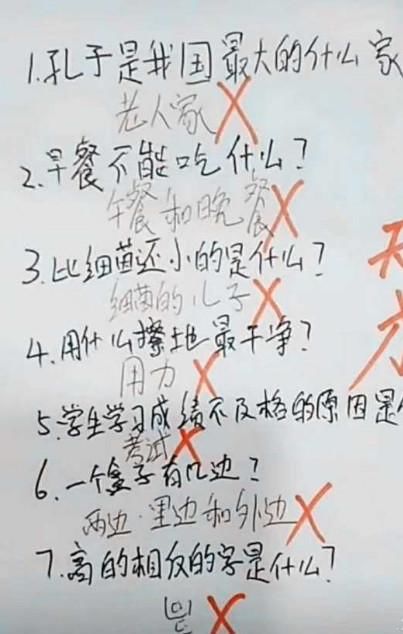 1.孔子是我国最大的什么家
老人家
2.早餐不能吃什么?
午餐和晚餐
3.比细菌还小的是什么?
细菌的儿子
4.用什么擦地最干净?
用力
5.学生学习成绩不及格的原因是
考试
6.一个盒子有几边?
两边.里边和外边
7.高的相反的字是什么?
天才